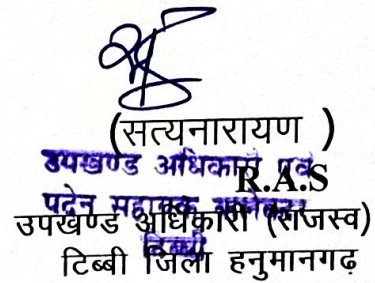 (सत्यनारायण )
उपखण्ड अधिकारी एवं
R.A.S
पदेन सहायक कलेक्टर
उपखण्ड अधिकारी (राजस्व)
टिब्बी
टिब्बी जिला हनुमानगढ़